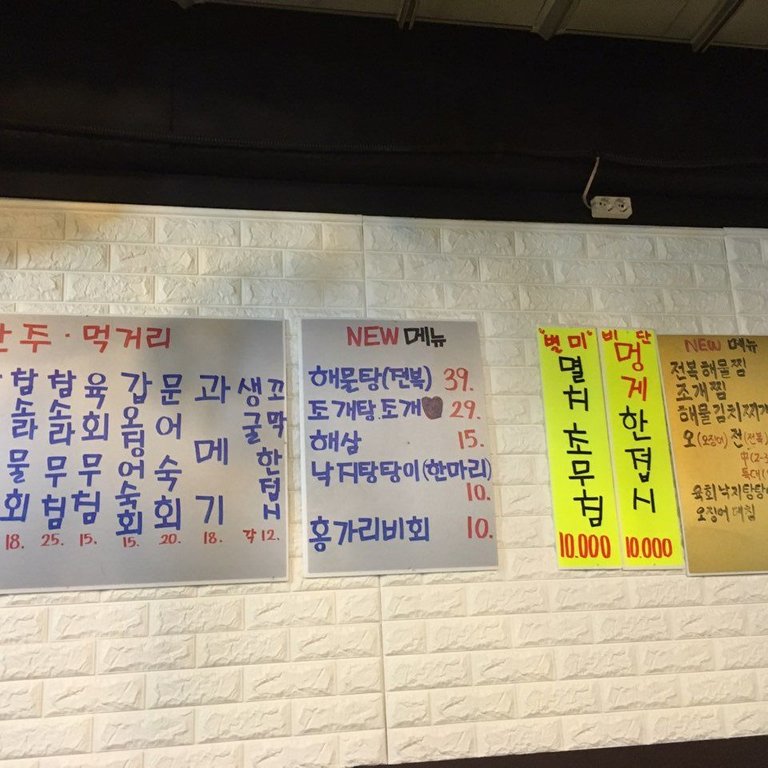 주·먹거리
참소라물회 18.
참소라무침 25.
육회무침 15.
갑오징어숙회 15.
문어숙회 20.
과메기 18.
생굴
꼬막한접시
각 12.
NEW 메뉴
해물탕(전복) 39.
조개탕조개 29.
해삼 15.
낙지탕탕이(한마리)
10.
홍가리비회 10.
"별미"
멸치초무침
10.000
비단
멍게한접시
10.000
NEW 메뉴
전복해물찜
조개찜
해물김치찌개
오(오징어)전(전복)
中(2-3
특대(
육회낙지탕탕이
오징어데침